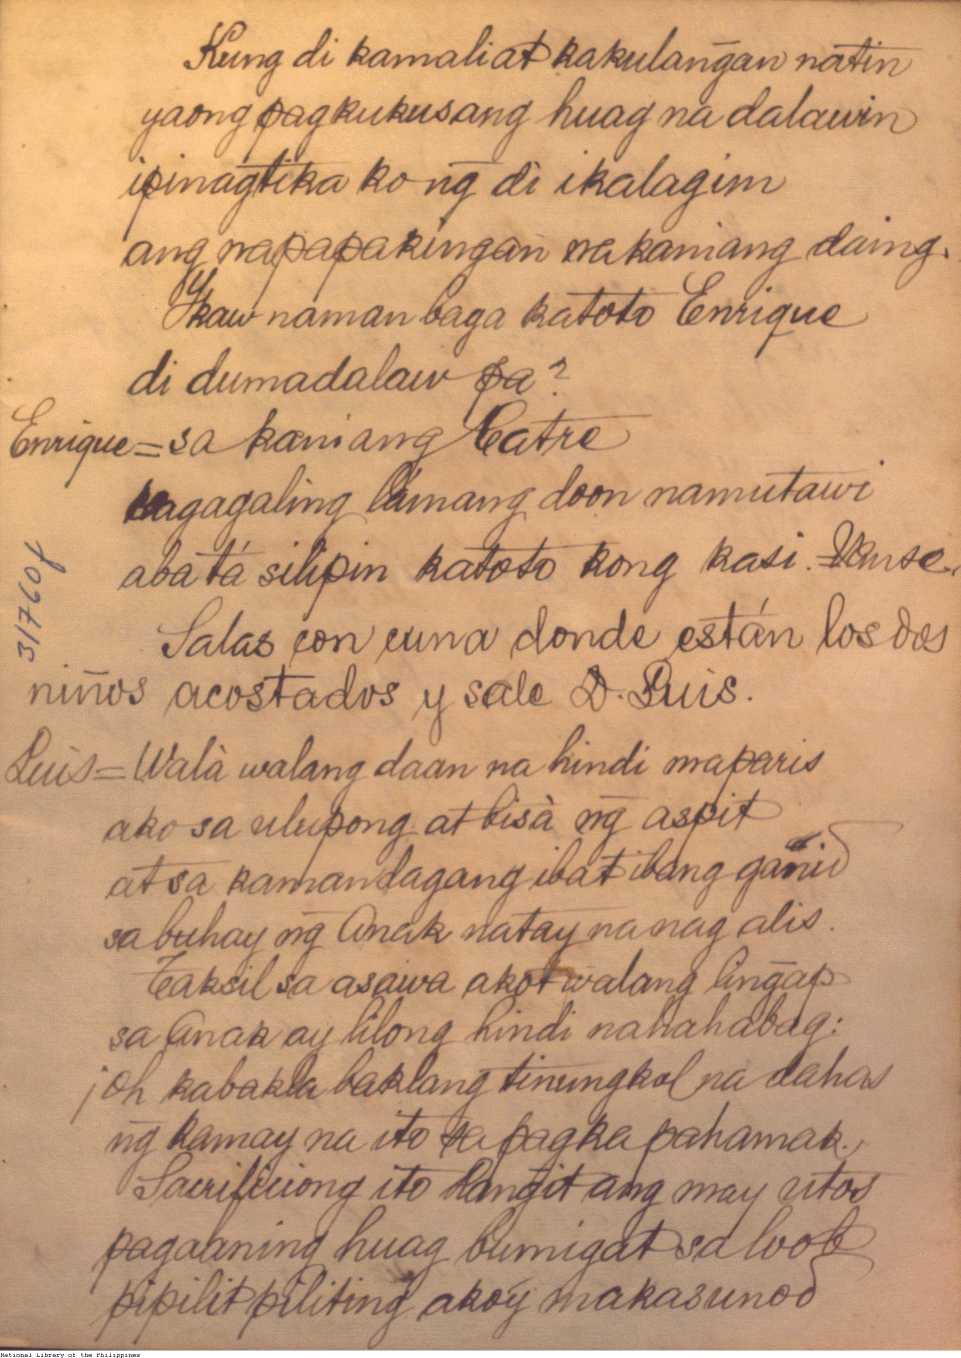 Kung di kamali at kakulan̄gan natin
yaong pagkukusang huag na dalawin
ipinagtika ko n̄g di ikalagim
ang napapakingan na kaniang daing.
Ykaw naman baga katoto Enrique
di dumadalaw pa?
Enrique = sa kaniang Catre
nagagaling lamang doon namutawi
aba tá silipin katoto kong kasi. = Vanse.
Salas con cuna donde están los dos
niños acostados y sale D. Luis.
31760f
Luis = Walà walang daan na hindi maparis
ako sa ulupong at bisà n̄g aspit
at sa kamandagang ibat ibang ganid
sa buhay n̄g Anak natay na nag alis.
Taksil sa asawa ako't walang lin̄gap
sa Anak ay lilong hindi nahahabag:
¡oh kabakla baklang tinungkol na dahas
n̄g kamay na ito sa pagka pahamak.
Sacrificiong ito lan̄git ang may utos
pagaaning huag bumigat sa loob
pipilit piliting akoy makasunod
National Library of the Philippines